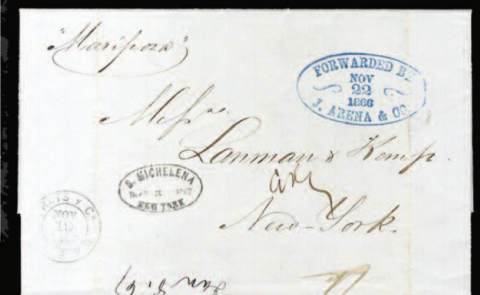 "Mariposa"
FORWARDED BY
NOV
22
1866
J. ARENA & CO
Messrs
Lanman & Kemp.
S. MICHELENA
NEW YORK
New-York.
NOV
19